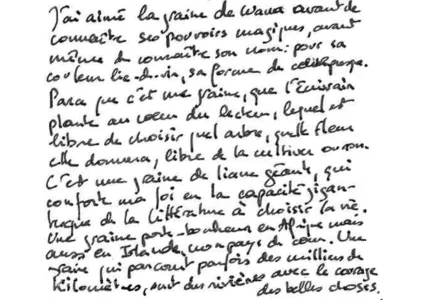 J'ai aimé la graine de Wawa avant de
connaître ses pouvoirs magiques, avant
même de connaître son nom : pour sa
couleur lie-de-vin, sa forme de
Parce que c'est une graine, que l'Écrivain
plante au cœur du lecteur, lequel est
libre de choisir quel arbre, quelle fleur
elle donnera, libre de la cultiver ou non.
C'est une graine de liane géante, qui
conforte ma foi en la capacité gigan-
tesque de la littérature à choisir la vie.
Une graine porte-bonheur en Afrique mais
aussi en Islande, mon pays de cœur. Une
graine qui parcourt parfois des milliers de
kilomètres, suit des rivières avec le courage
des belles choses.